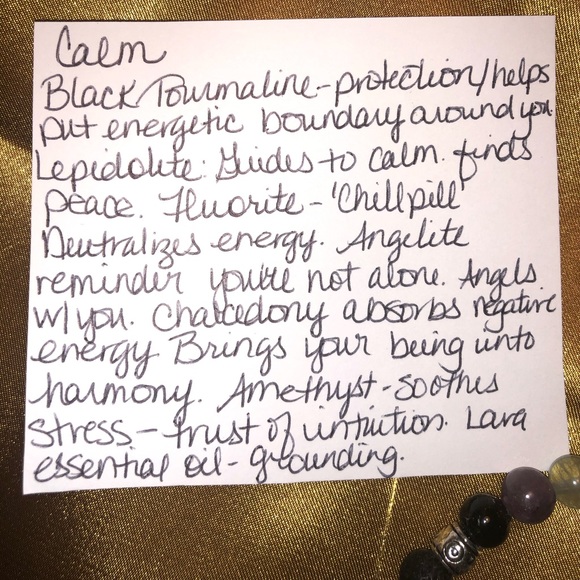 Calm
Black Tourmaline - protection/helps
put energetic boundary around you.
Lepidolite: Guides to calm. finds
peace. Fluorite - 'Chill pill'
Neutralizes energy. Angelite
reminder you're not alone. Angels
w/ you. Chalcedony absorbs negative
energy Brings your being into
harmony. Amethyst - soothes
stress - trust of intuition. Lava
essential oil - grounding.